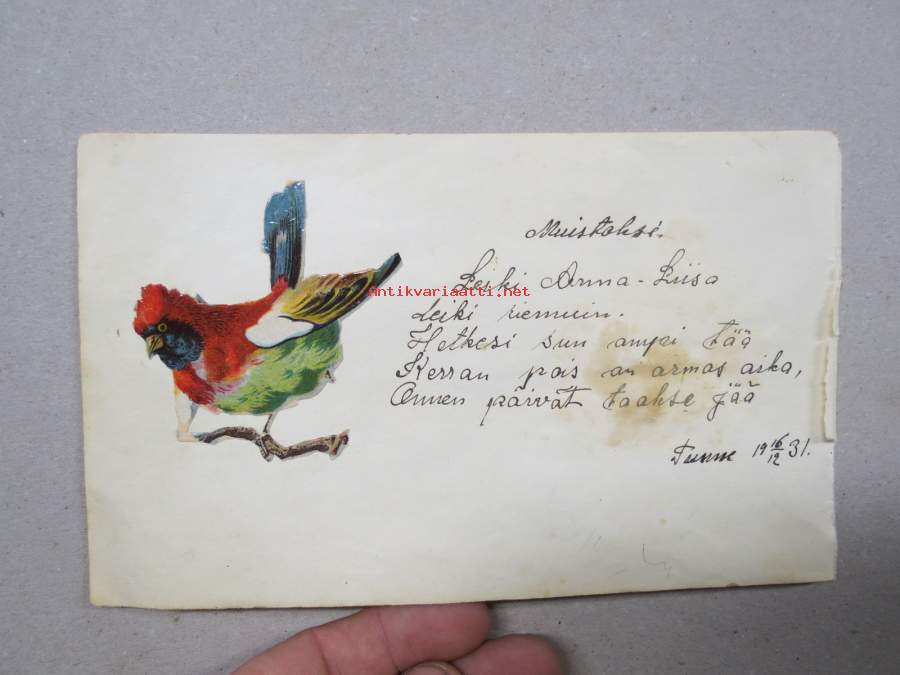 Muistoksi.
Leski Anna-Liisa
antikvariaatti.net
leiki riemuin.
Hetkesi sun
tää
Kerran pois on armas aika,
Onnen päivät taakse jää
19 16/12 31.